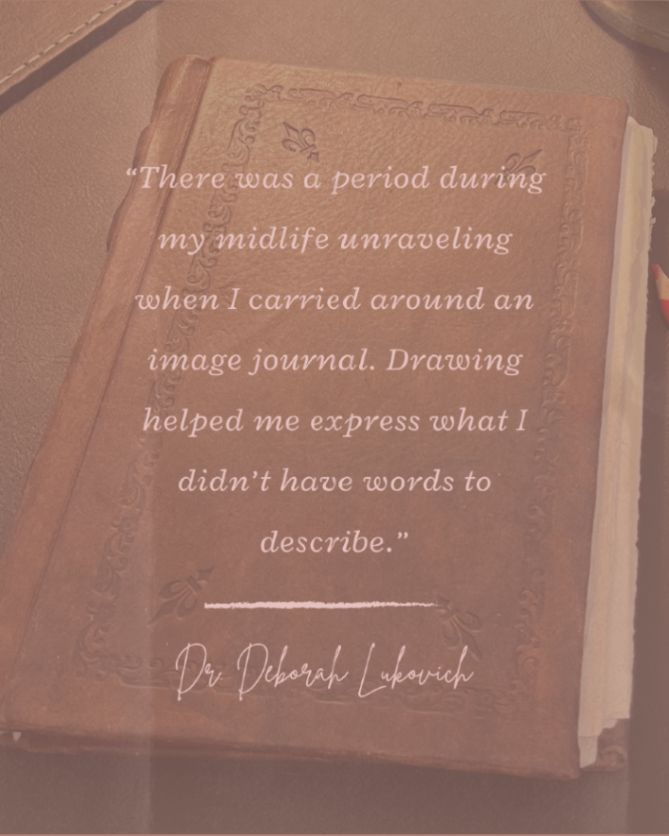 “There was a period during
my midlife unraveling
when I carried around an
image journal. Drawing
helped me express what I
didn’t have words to
describe.”
Dr. Deborah Lukovich